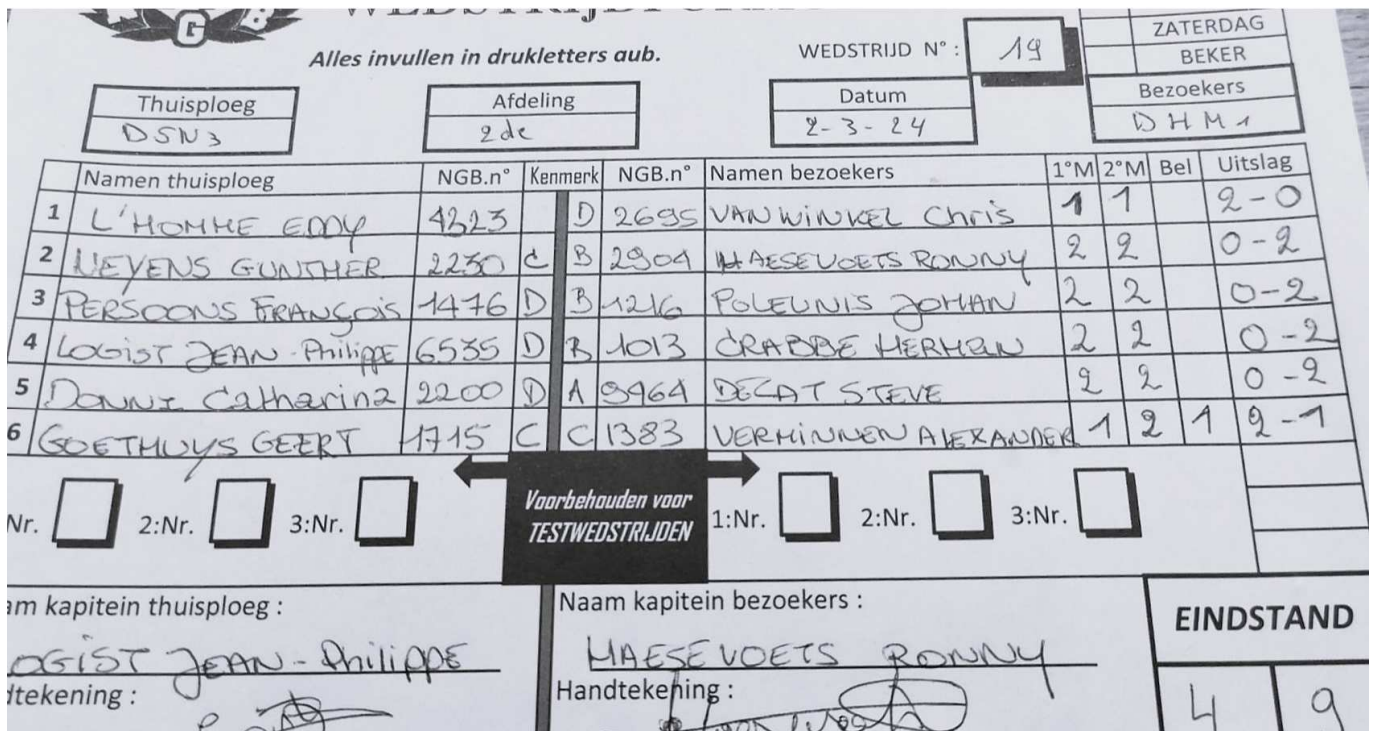 G B
Alles invullen in drukletters aub.
WEDSTRIJD N° : 19
ZATERDAG
BEKER
Thuisploeg Afdeling Datum Bezoekers
DSN3 2de 2-3-24 DHM1
Namen thuisploeg NGB.n° Kenmerk NGB.n° Namen bezoekers 1°M 2°M Bel Uitslag
1 L'HOMME EDDY 4323 D 2695 VANWINKEL Chris 1 1 2-0
2 NEYENS GUNTHER 2230 C B 2904 HAESEVOETS RONNY 2 2 0-2
3 PERSOONS FRANÇOIS 1476 D B 1216 POLEUNIS JOHAN 2 2 0-2
4 LOGIST JEAN-Philippe 6535 D B 1013 CRABBE HERMAN 2 2 0-2
5 DONNI Catharina 2200 D A 9464 DECAT STEVE 2 2 0-2
6 GOETHUYS GEERT 1715 C C 1383 VERMINNEN ALEXANDER 1 2 1 2-1
Nr. 2:Nr. 3:Nr. 1:Nr. 2:Nr. 3:Nr.
Voorbehouden voor
TESTWEDSTRIJDEN
am kapitein thuisploeg : Naam kapitein bezoekers : EINDSTAND
OGIST JEAN-Philippe HAESEVOETS RONNY
dtekening : Handtekening : 4 9